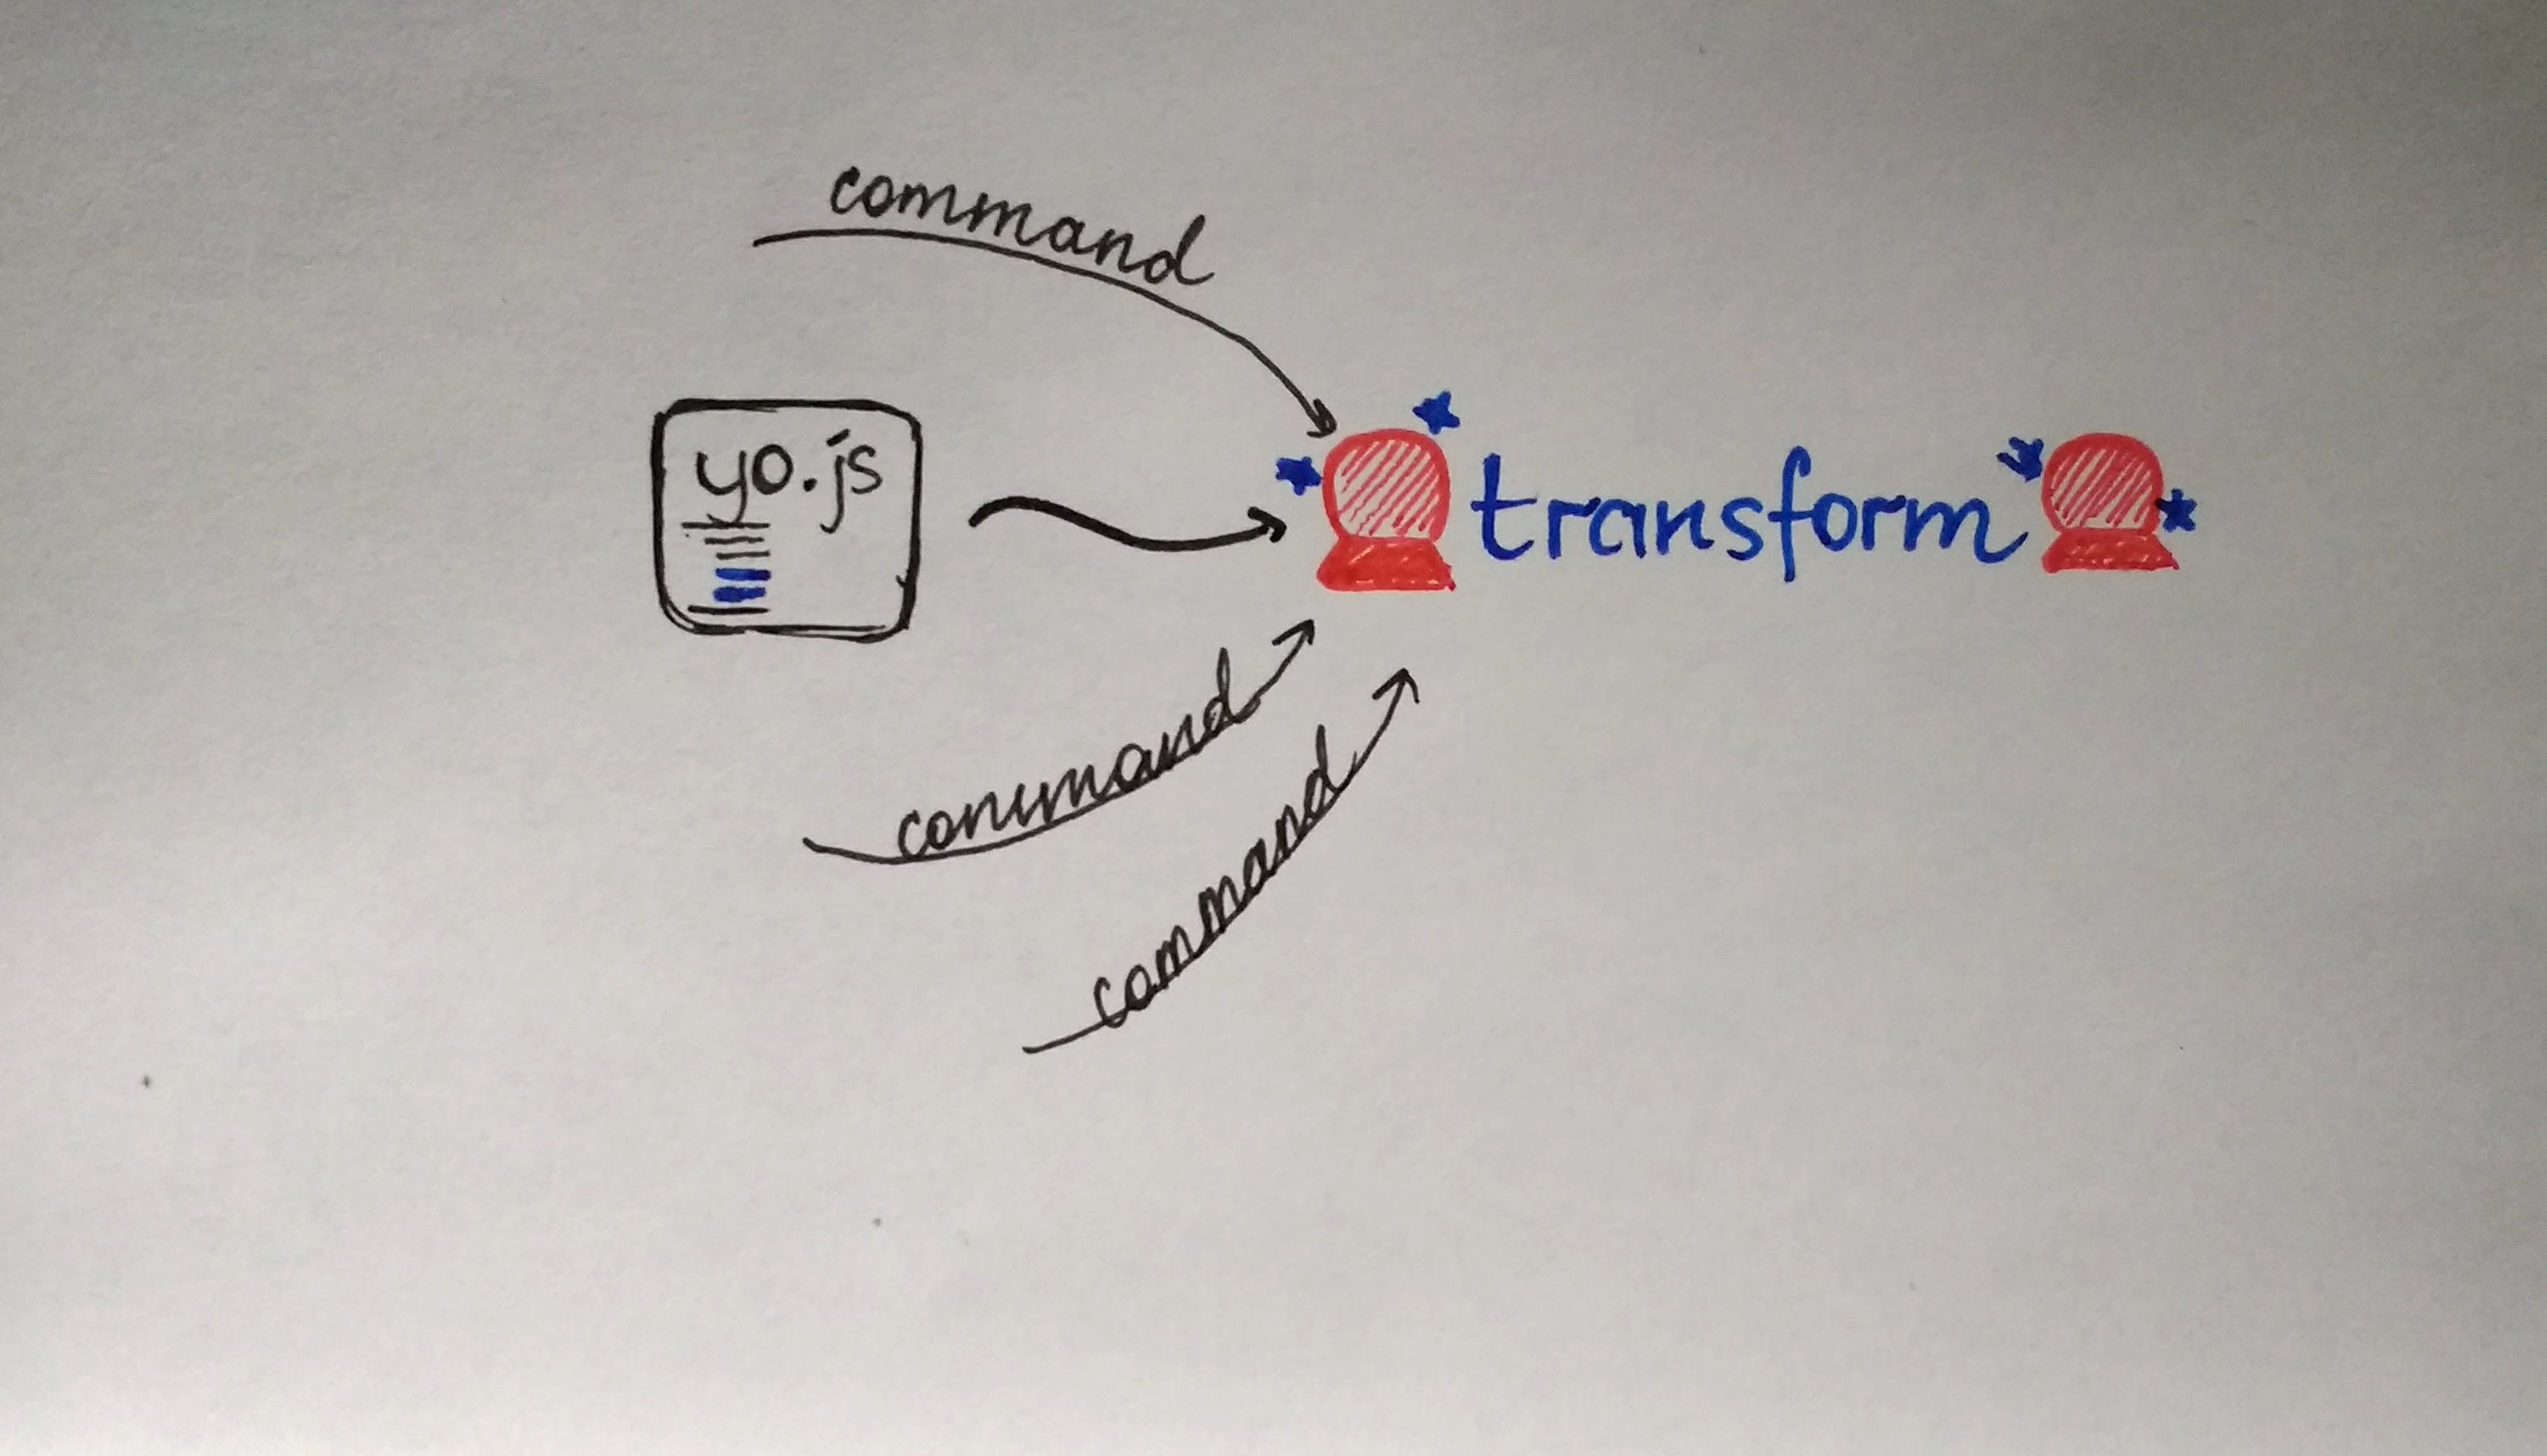 command
yo.js
transform
command
command